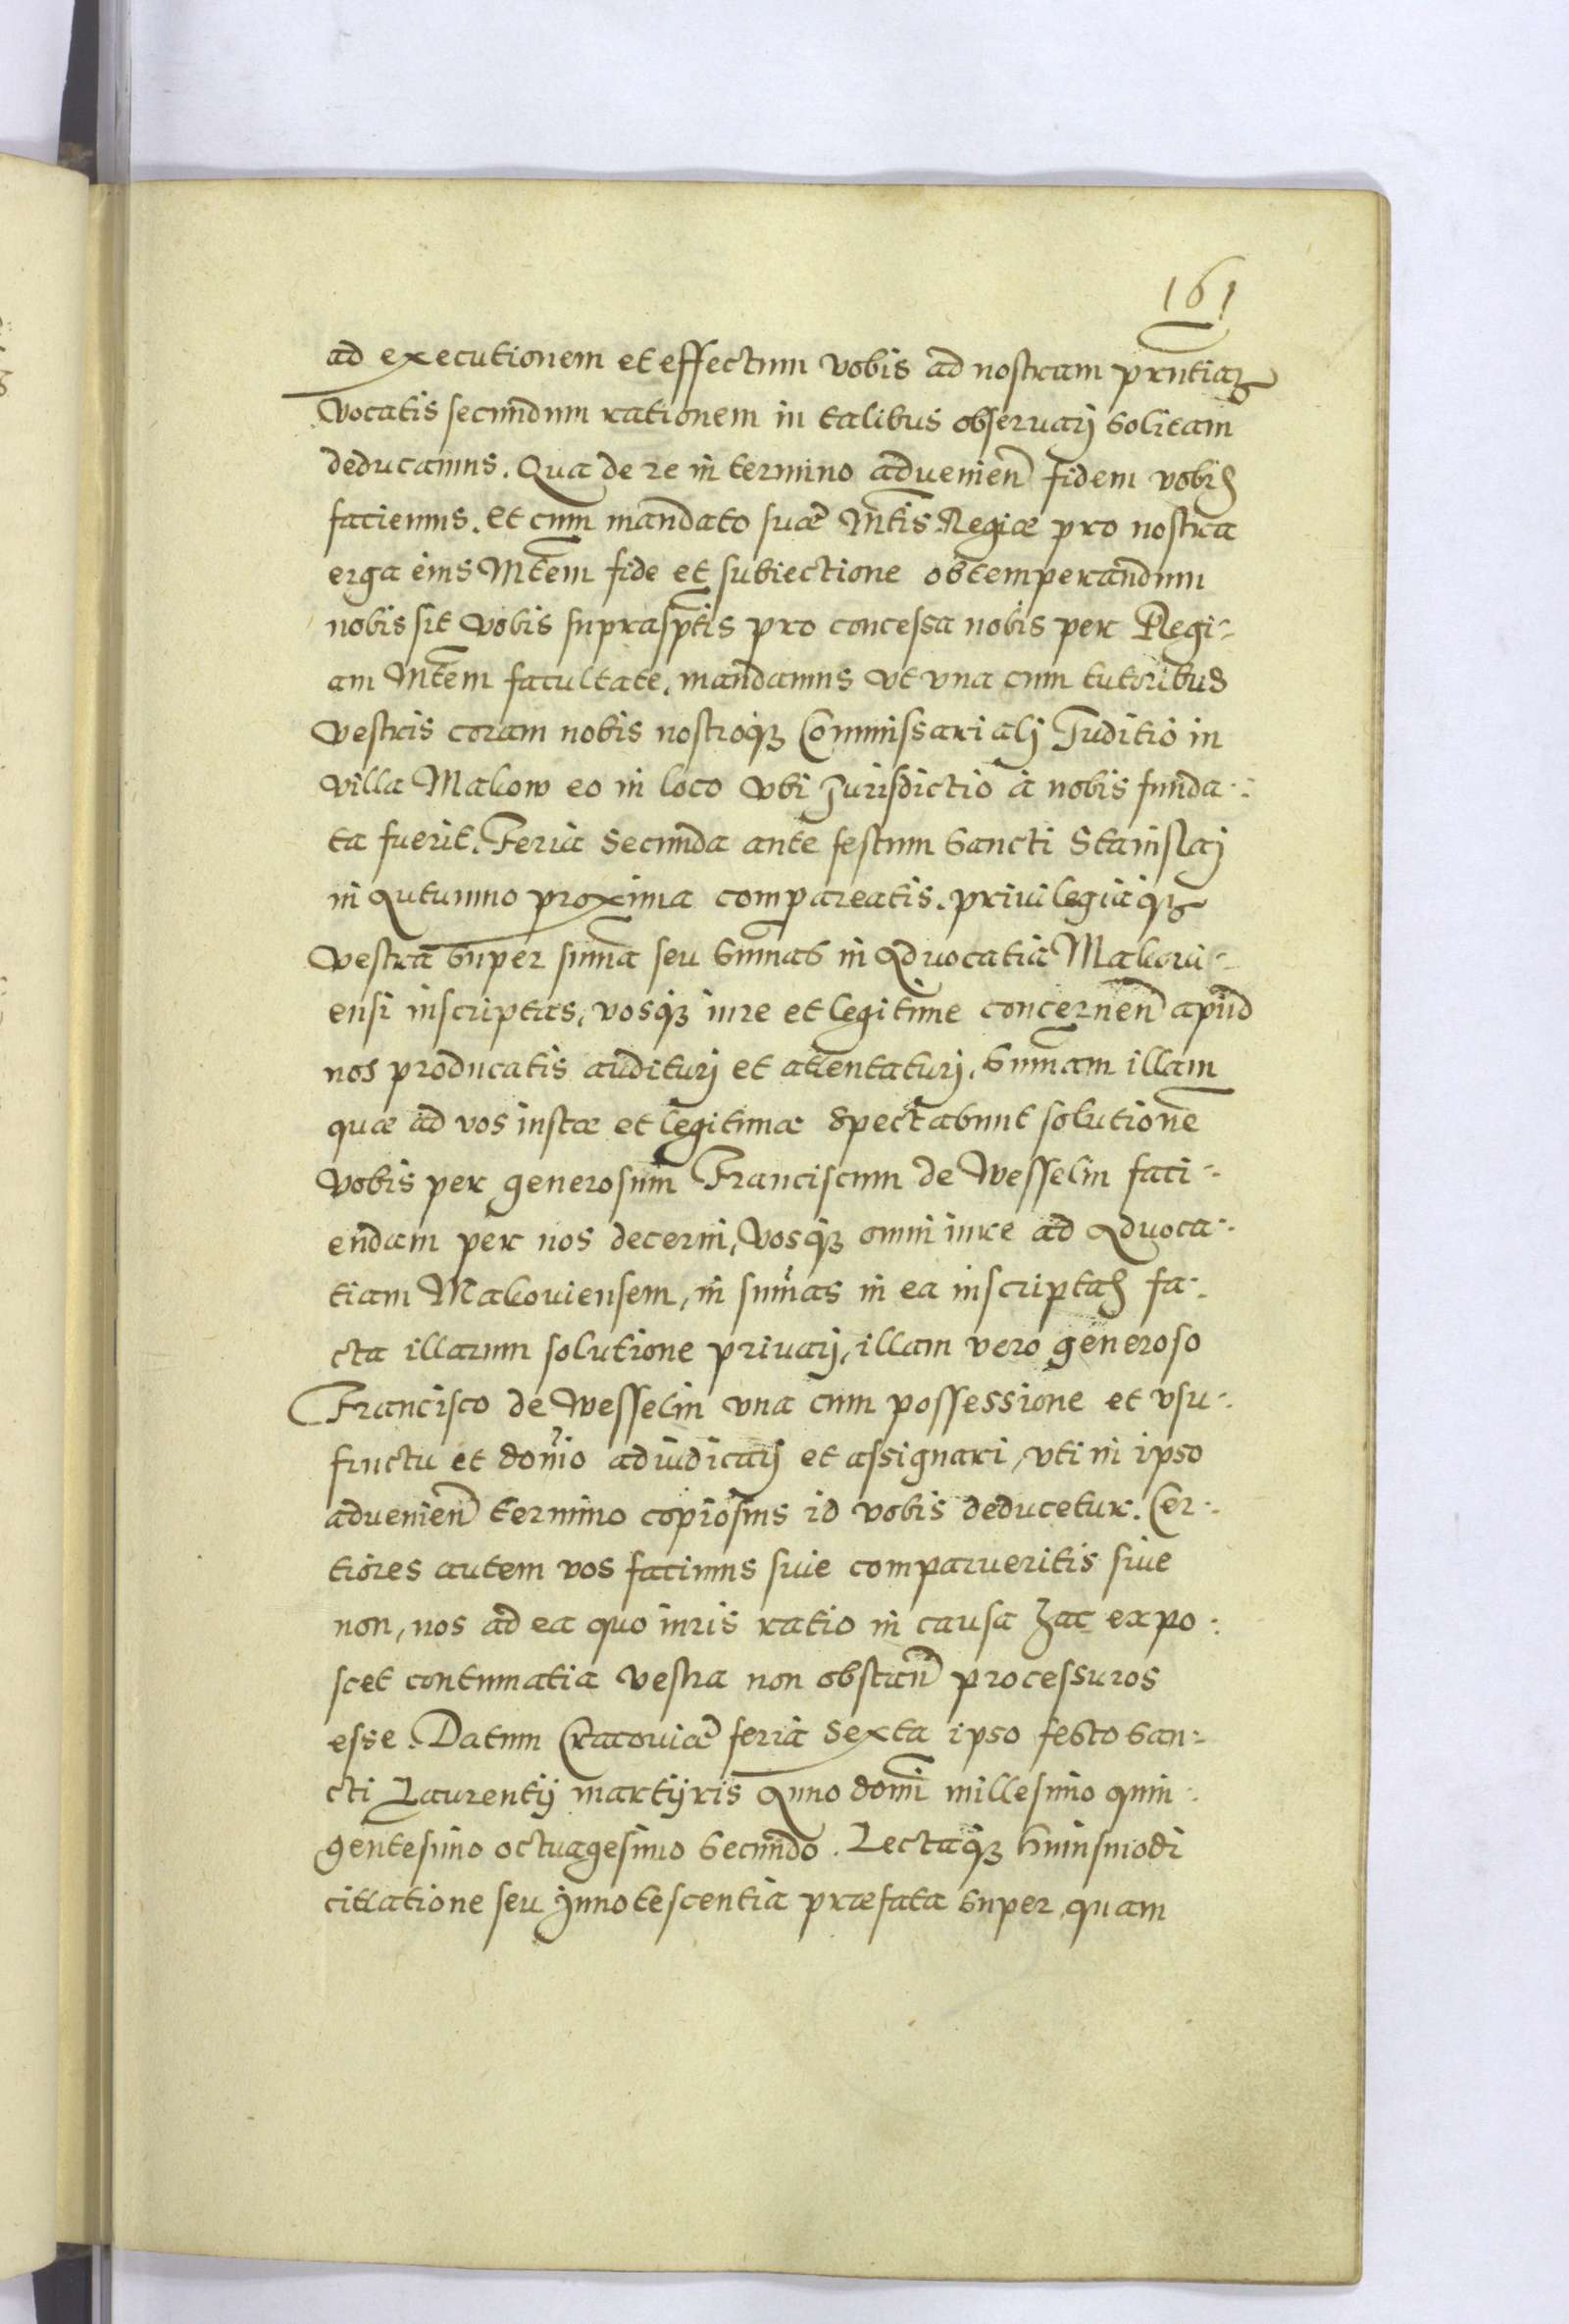 161
ad executionem et effectum vobis ad nostram prntiaꝫ
Vocatis secundum rationem in talibus obseruarj solitam
deducamus. Qua de re in termino aduenien̄ fidem vobis
faciemus. et cum mandato suæ Mtis Regiæ pro nostra
erga eius Mtem fide et subiectione obtemperandum
nobis sit vobis suprasptis pro concessa nobis per Regi-
am Mtem facultate, mandamus vt vna cum tutoribus
vestris coram nobis nostroqꝫ Commissarialj Juditio in
villa Makow eo in loco vbi Jurisdictio à nobis funda-
ta fuerit. Feria Secunda ante festum Sancti Stanislaj
in Autumno proxima compareatis. priuilegiaqꝫ
vestra super suma seu sumas in Aduocatia Makoui-
ensi inscriptas, vosqꝫ iure et legitime concernen̄ apud
nos producatis audituri et attentaturj. Sumam illam
quæ ad vos iustæ et legitimæ spectabunt solutione
vobis per generosum Franciscum de Wesselin faci-
endam per nos decerni, Vosqꝫ omni iure ad Aduoca-
tiam Makouiensem, in sumas in ea inscriptas fa-
cta illarum solutione priuarj, illam vero generoso
Francisco de Wesselin vna cum possessione et vsu-
fructu et domio adiudicarj et assignari, vti in ipso
aduenien̄ termino copiosius id vobis deducetur. Cer-
tiores autem vos facimus siue comparueritis siue
non, nos ad ea quo iuris ratio in causa hac expo-
scet contumatia vestra non obstan̄ processuros
esse. Datum Cracouiæ feria Sexta ipso festo San-
cti Laurentij martijris Anno domi millesimo quin-
gentesimo octuagesimo Secundo. Lectaqꝫ huiusmodi
cittatione seu Jnnotescentia præfata super quam